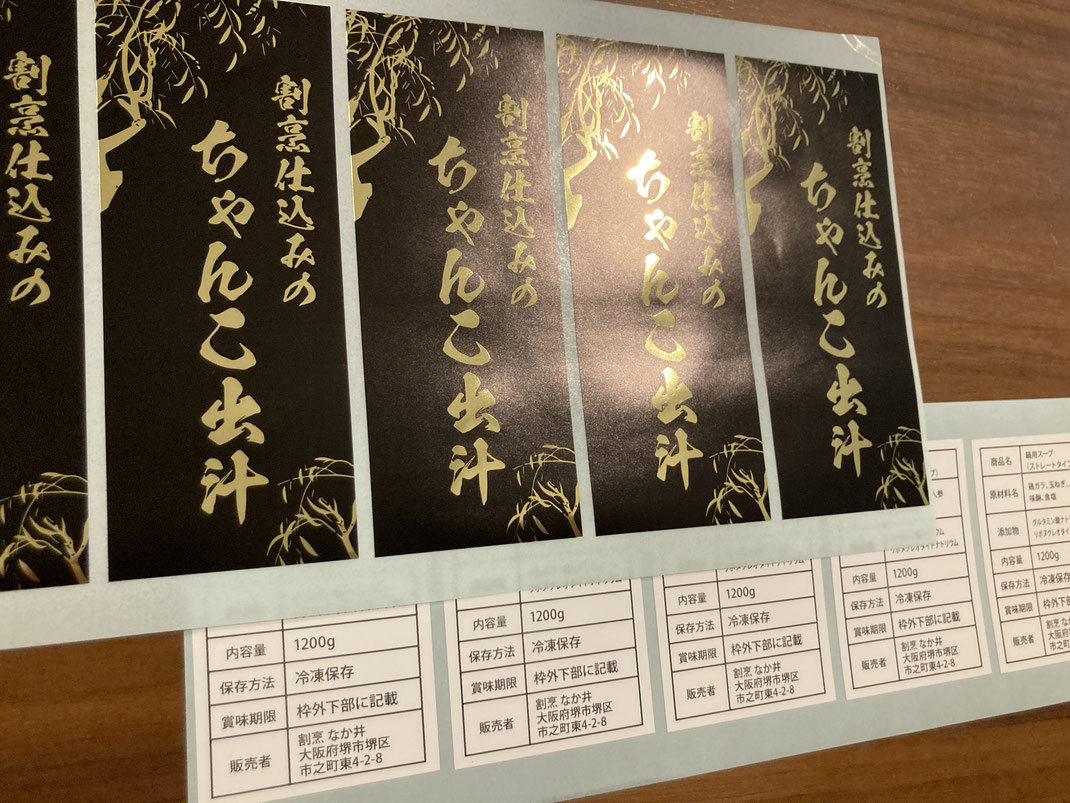 割烹仕込みの
割烹仕込みの
ちゃんこ出汁
割烹仕込みの
ちゃんこ出汁
割烹仕込みの
ちゃんこ出汁
割烹仕込みの
ちゃんこ出汁
内容量 1200g
保存方法 冷凍保存
賞味期限 枠外下部に記載
販売者 割烹 なか井
大阪府堺市堺区
市之町東4-2-8
内容量 1200g
保存方法 冷凍保存
賞味期限 枠外下部に記載
販売者 割烹 なか井
大阪府堺市堺区
市之町東4-2-8
内容量 1200g
保存方法 冷凍保存
賞味期限 枠外下部に記載
販売者 割烹 なか井
大阪府堺市堺区
市之町東4-2-8
人参
リボヌクレオタイドナトリウム
内容量 1200g
保存方法 冷凍保存
賞味期限 枠外下部に記載
販売者 割烹 なか井
大阪府堺市堺区
市之町東4-2-8
商品名 鍋用スープ
（ストレートタイプ
原材料名 鶏ガラ、玉ねぎ、
味醂、食塩
添加物 グルタミン酸ナトリ
リボヌクレオタイ
内容量 1200g
保存方法 冷凍保存
賞味期限 枠外下
販売者 割烹 な
大阪府
市之町